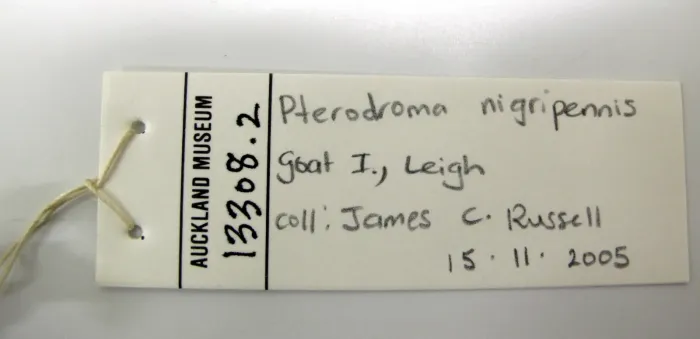 AUCKLAND MUSEUM
13308.2
Pterodroma nigripennis
Goat I., Leigh
coll: James C. Russell
15.11.2005